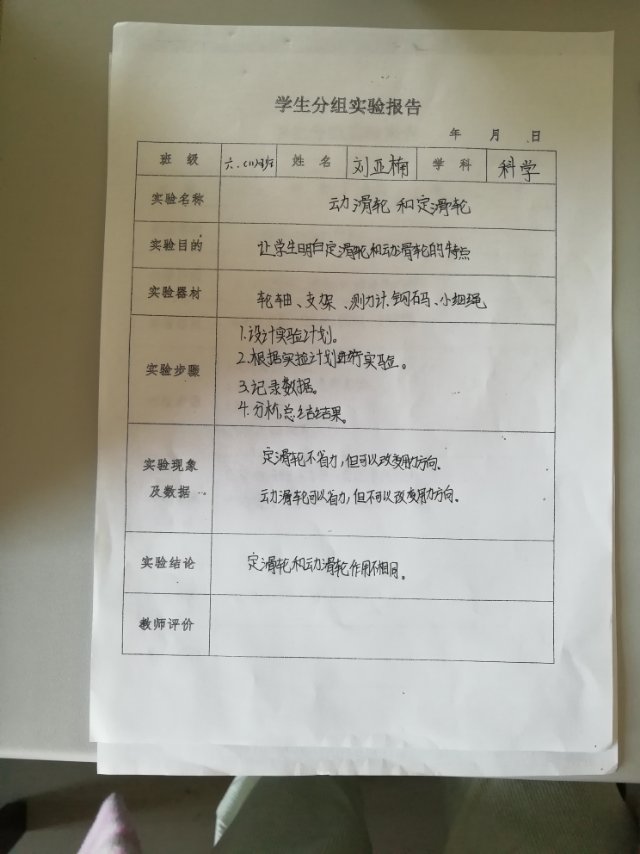 学生分组实验报告
年 月 日
班 级 六.(1)班 姓 名 刘亚楠 学 科 科学
实验名称 动滑轮和定滑轮
实验目的 让学生明白定滑轮和动滑轮的特点
实验器材 轮轴、支架、测力计.钩码、小细绳
实验步骤 1.设计实验计划。
2.根据实验计划进行实验。
3.记录数据。
4.分析总结结果。
实验现象 定滑轮不省力,但可以改变用力方向。
及数据 动滑轮可以省力,但不可以改变用力方向。
实验结论 定滑轮和动滑轮作用不相同。
教师评价